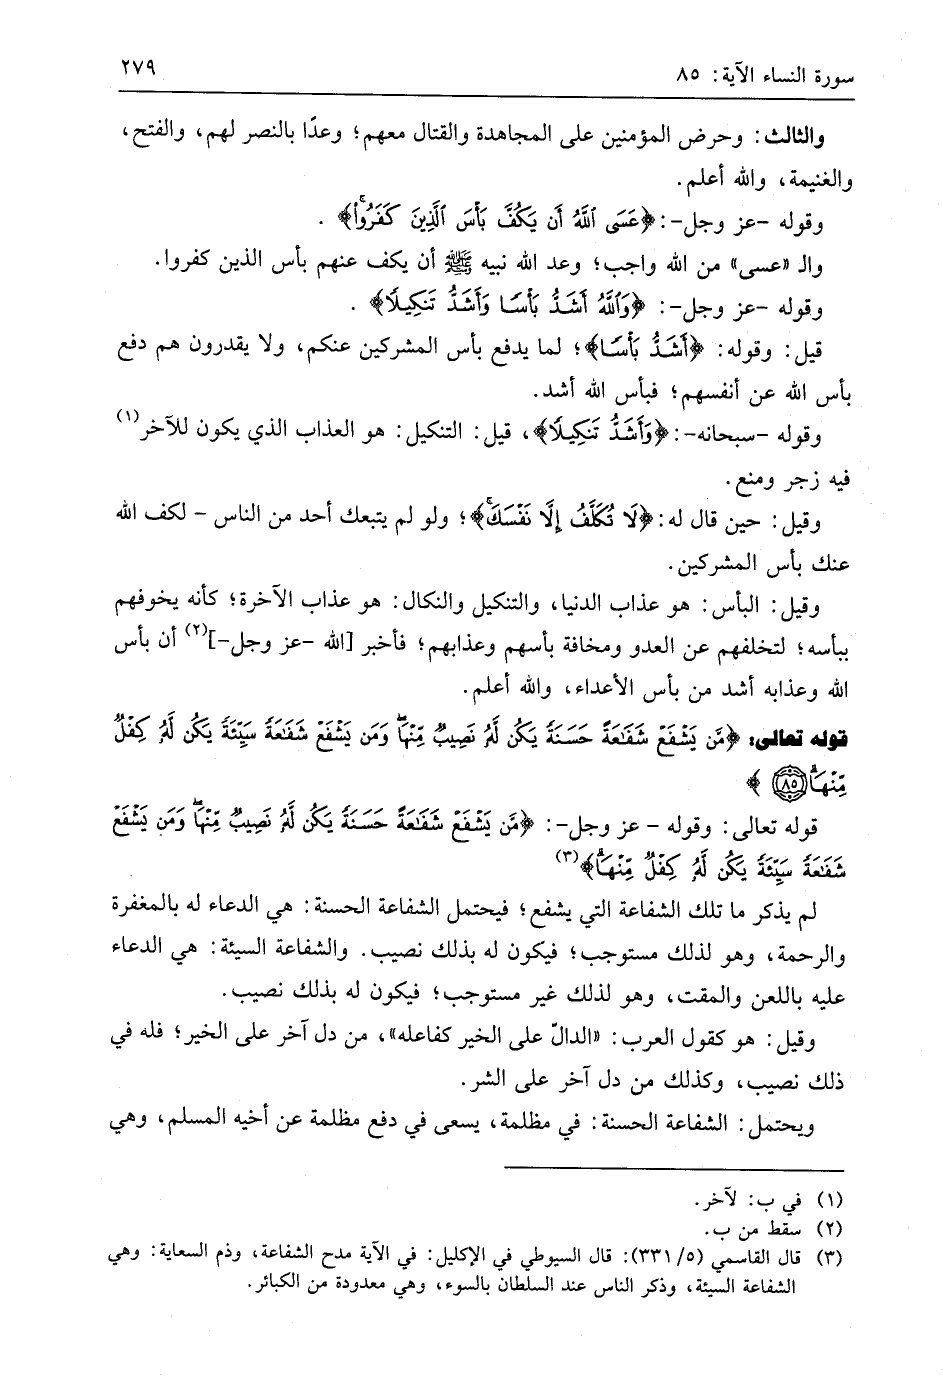 سورة النساء الآية: ٨٥
٢٧٩
والثالث: وحرض المؤمنين على المجاهدة والقتال معهم؛ وعدًا بالنصر لهم، والفتح،
والغنيمة، والله أعلم.
وقوله -عز وجل-: ﴿عَسَى ٱللَّهُ أَن يَكُفَّ بَأْسَ ٱلَّذِينَ كَفَرُوا۟ۚ﴾ .
والـ «عسى» من الله واجب؛ وعد الله نبيه ﷺ أن يكف عنهم بأس الذين كفروا.
وقوله -عز وجل-: ﴿وَٱللَّهُ أَشَدُّ بَأْسًا وَأَشَدُّ تَنكِيلًا﴾ .
قيل: وقوله: ﴿أَشَدُّ بَأْسًا﴾؛ لما يدفع بأس المشركين عنكم، ولا يقدرون هم دفع
بأس الله عن أنفسهم؛ فبأس الله أشد.
وقوله -سبحانه-: ﴿وَأَشَدُّ تَنكِيلًا﴾، قيل: التنكيل: هو العذاب الذي يكون للآخر(١)
فيه زجر ومنع.
وقيل: حين قال له: ﴿لَا تُكَلَّفُ إِلَّا نَفْسَكَۚ﴾؛ ولو لم يتبعك أحد من الناس - لكف الله
عنك بأس المشركين.
وقيل: البأس: هو عذاب الدنيا، والتنكيل والنكال: هو عذاب الآخرة؛ كأنه يخوفهم
ببأسه؛ لتخلفهم عن العدو ومخافة بأسهم وعذابهم؛ فأخبر [الله -عز وجل-](٢) أن بأس
الله وعذابه أشد من بأس الأعداء، والله أعلم.
قوله تعالى: ﴿مَّن يَشْفَعْ شَفَٰعَةً حَسَنَةً يَكُن لَّهُۥ نَصِيبٌ مِّنْهَاۖ وَمَن يَشْفَعْ شَفَٰعَةً سَيِّئَةً يَكُن لَّهُۥ كِفْلٌ
مِّنْهَاۗ ٨٥ ﴾
قوله تعالى: وقوله - عز وجل-: ﴿مَّن يَشْفَعْ شَفَٰعَةً حَسَنَةً يَكُن لَّهُۥ نَصِيبٌ مِّنْهَاۖ وَمَن يَشْفَعْ
شَفَٰعَةً سَيِّئَةً يَكُن لَّهُۥ كِفْلٌ مِّنْهَاۗ﴾(٣)
لم يذكر ما تلك الشفاعة التي يشفع؛ فيحتمل الشفاعة الحسنة: هي الدعاء له بالمغفرة
والرحمة، وهو لذلك مستوجب؛ فيكون له بذلك نصيب. والشفاعة السيئة: هي الدعاء
عليه باللعن والمقت، وهو لذلك غير مستوجب؛ فيكون له بذلك نصيب.
وقيل: هو كقول العرب: «الدالّ على الخير كفاعله»، من دل آخر على الخير؛ فله في
ذلك نصيب، وكذلك من دل آخر على الشر.
ويحتمل: الشفاعة الحسنة: في مظلمة، يسعى في دفع مظلمة عن أخيه المسلم، وهي
(١) في ب: لآخر.
(٢) سقط من ب.
(٣) قال القاسمي (٥/ ٣٣١): قال السيوطي في الإكليل: في الآية مدح الشفاعة، وذم السعاية: وهي
الشفاعة السيئة، وذكر الناس عند السلطان بالسوء، وهي معدودة من الكبائر.